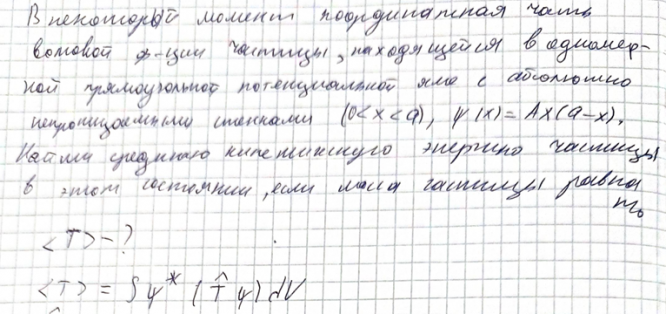 В некоторый момент координатная часть
волновой ф-ции частицы, находящейся в одномер-
ной прямоугольной потенциальной яме с абсолютно
непроницаемыми стенками (0<x<a), ψ(x)=Ax(a-x).
Найти среднюю кинетическую энергию частицы
в этом состоянии, если масса частицы равна
m₀
<T> - ?
<T> = ∫ψ* (T̂ψ) dV